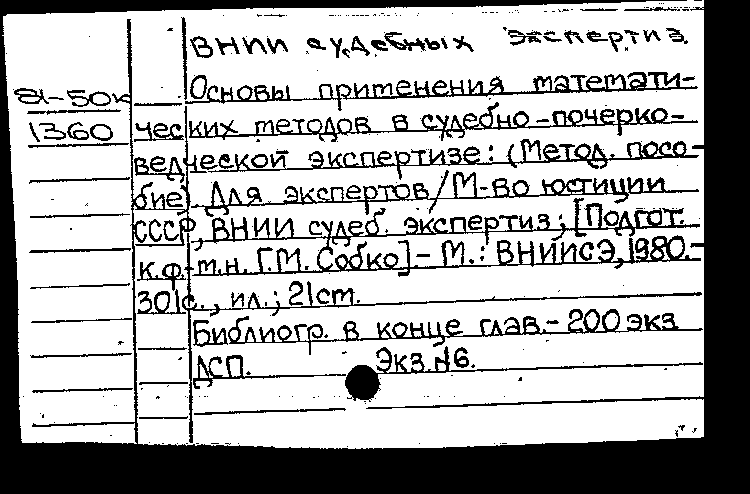 ВНИИ судебных экспертиз
81-50к Основы применения математи-
1360 ческих методов в судебно-почерко-
ведческой экспертизе: (Метод. посо-
бие). Для экспертов/М-во юстиции
СССР, ВНИИ судеб. экспертиз; [Подгот.
к.ф.-м.н. Г.М. Собко].- М.: ВНИИСЭ, 1980.-
301с., ил.; 21ст.
Библиогр. в конце глав.- 200 экз
ДСП. Экз.№6.